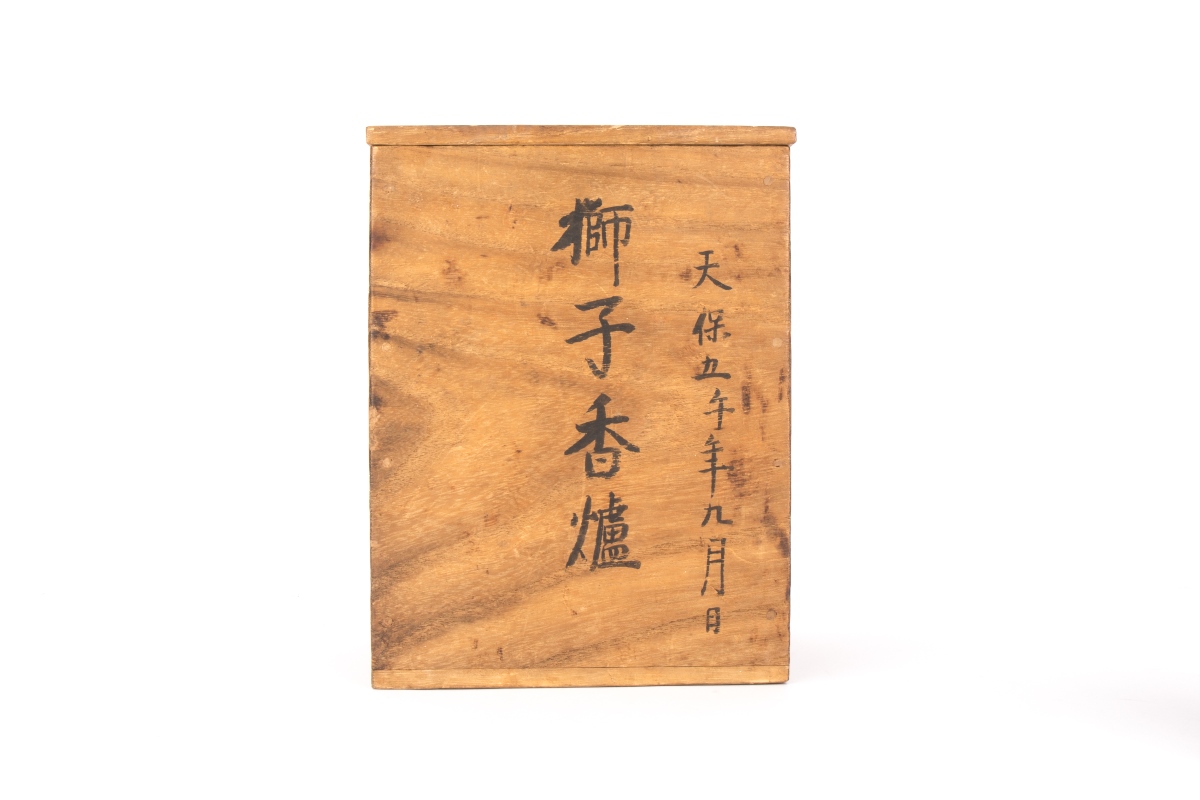 天保五午年九月日
獅子香爐